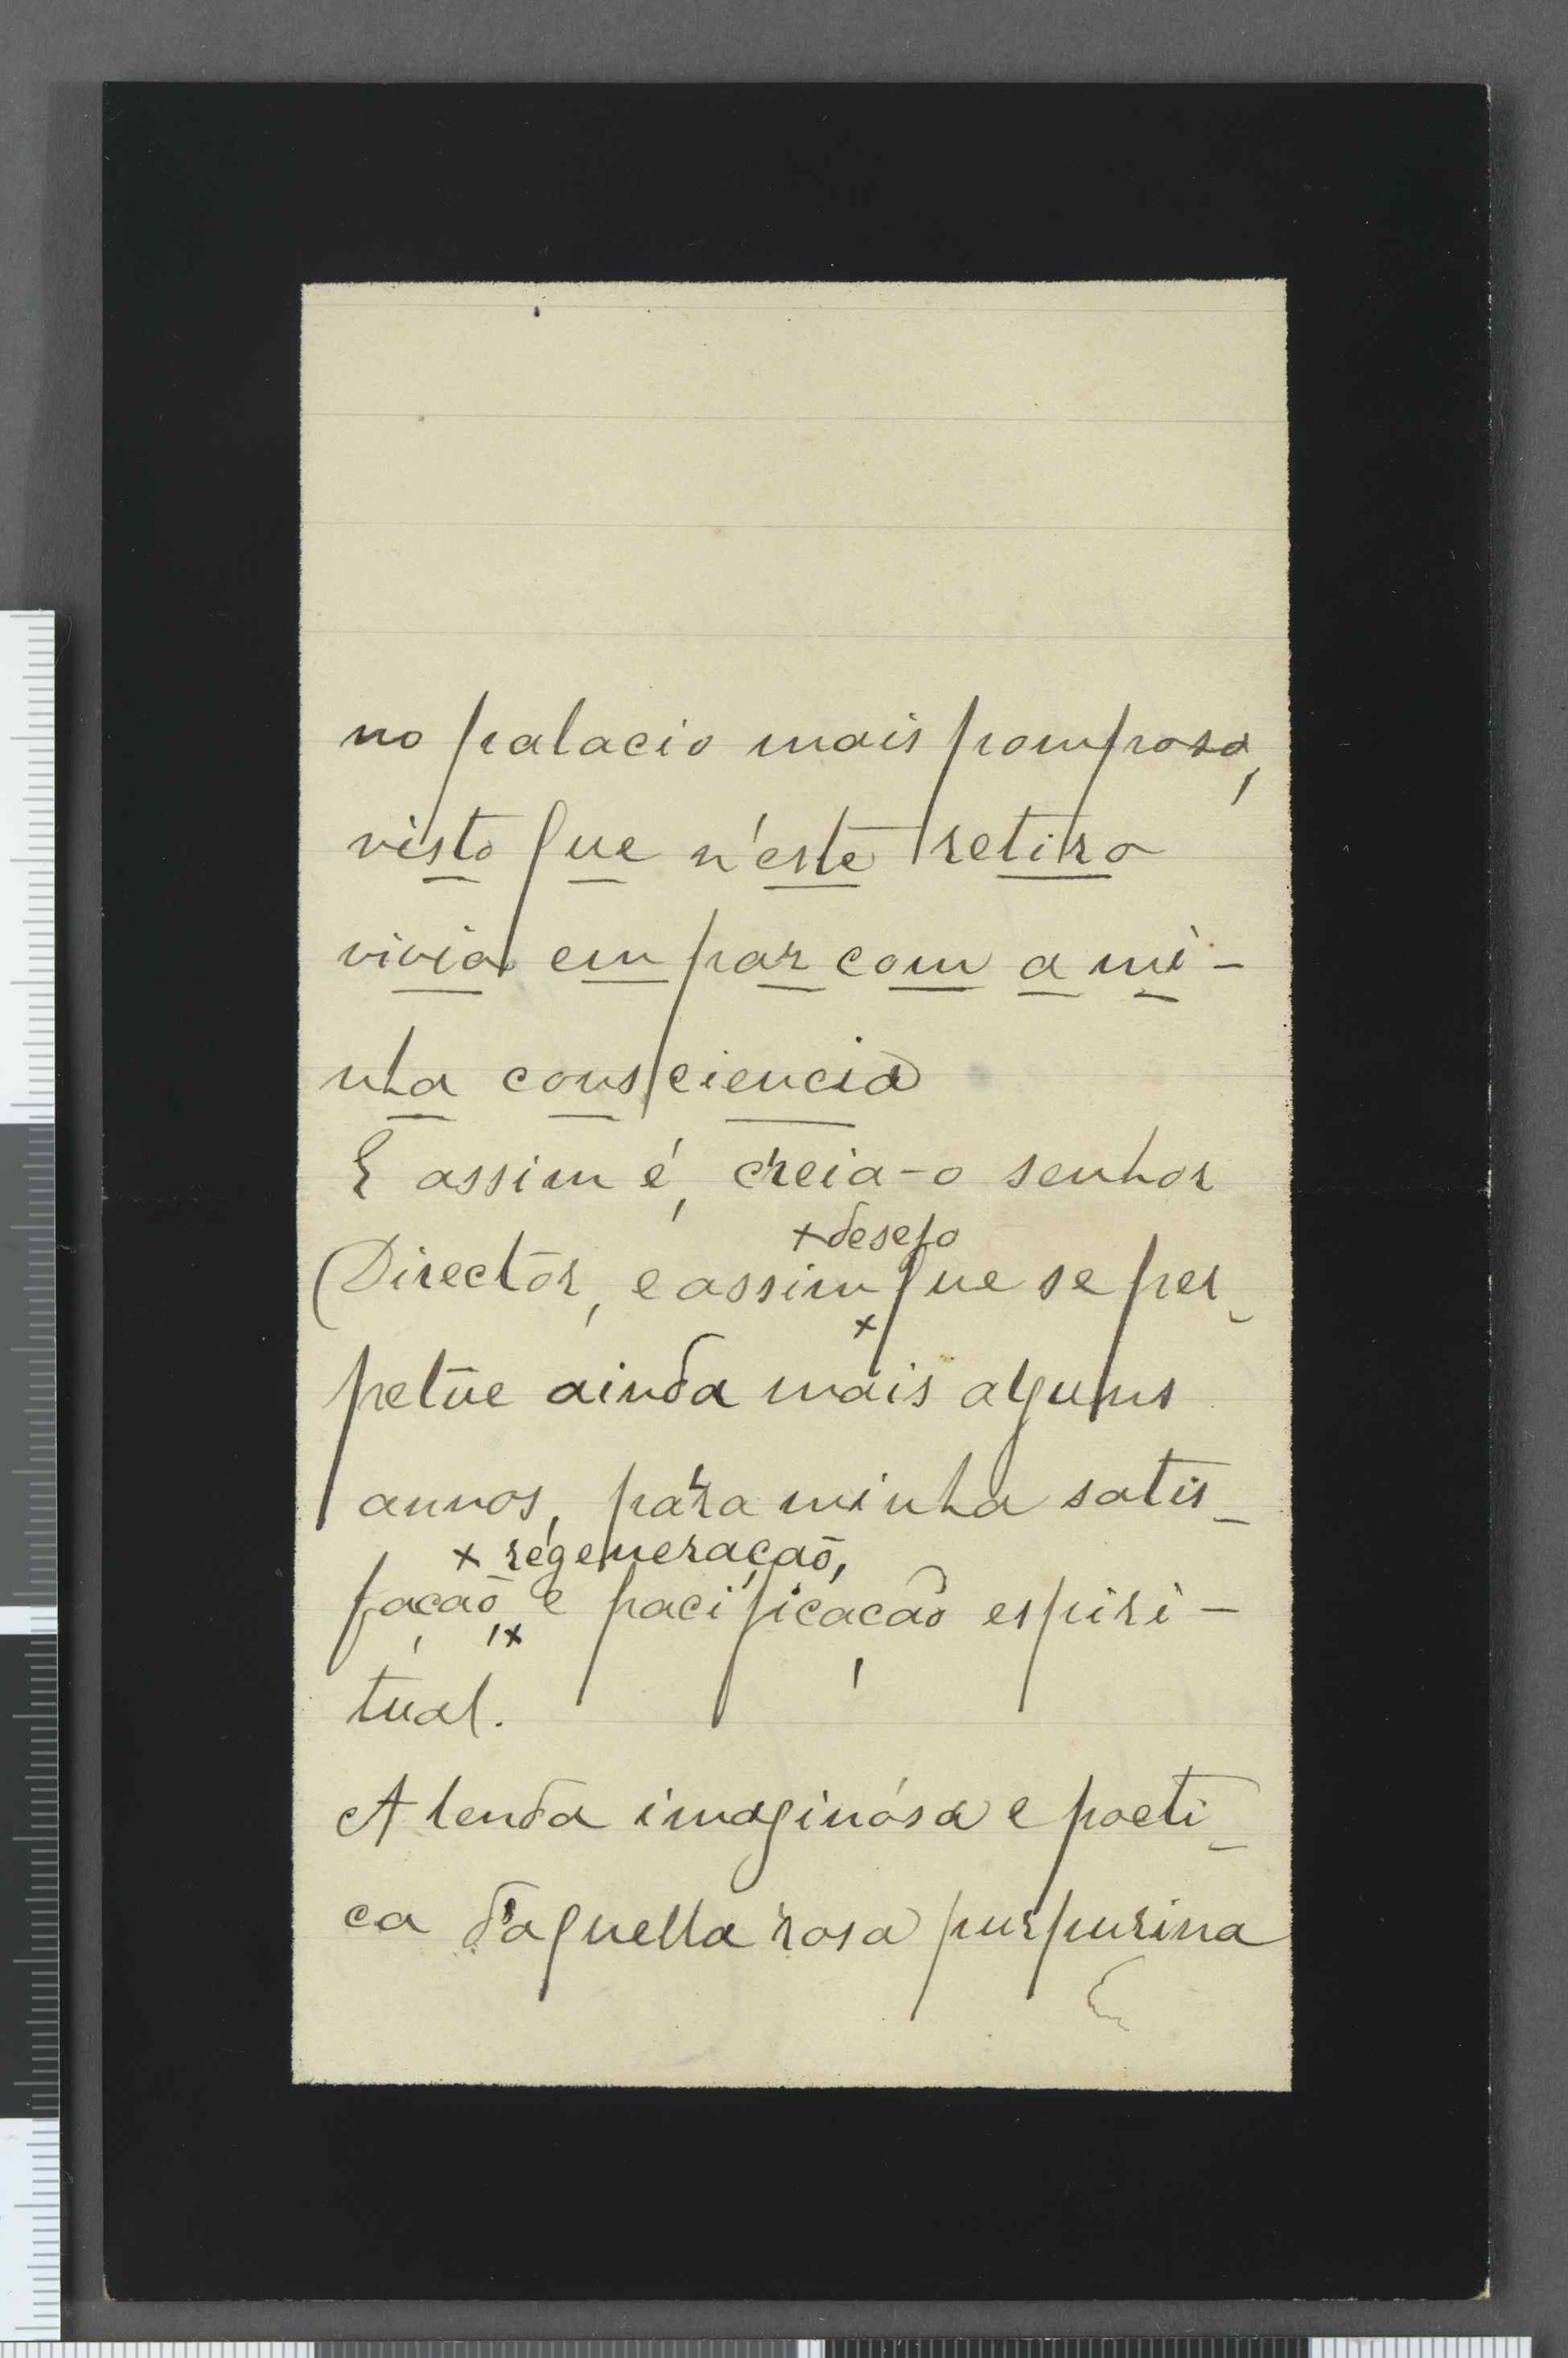 no palacio mais pomposo,
visto que n'este retiro
vivia em paz com a mi-
nha consciencia
E assim é, creia-o senhor
+ desejo
Director, e assim + que se per-
petúe ainda mais alguns
annos, para minha satis-
x regeneração,
fação, x e pacificação espiri-
tual.
A lenda imaginósa e poeti-
ca d'aquella rosa purpurina